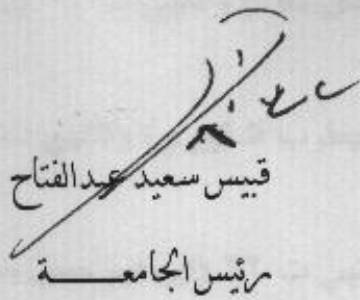 قبيس سعيد عبدالفتاح
رئيس الجامعــــة